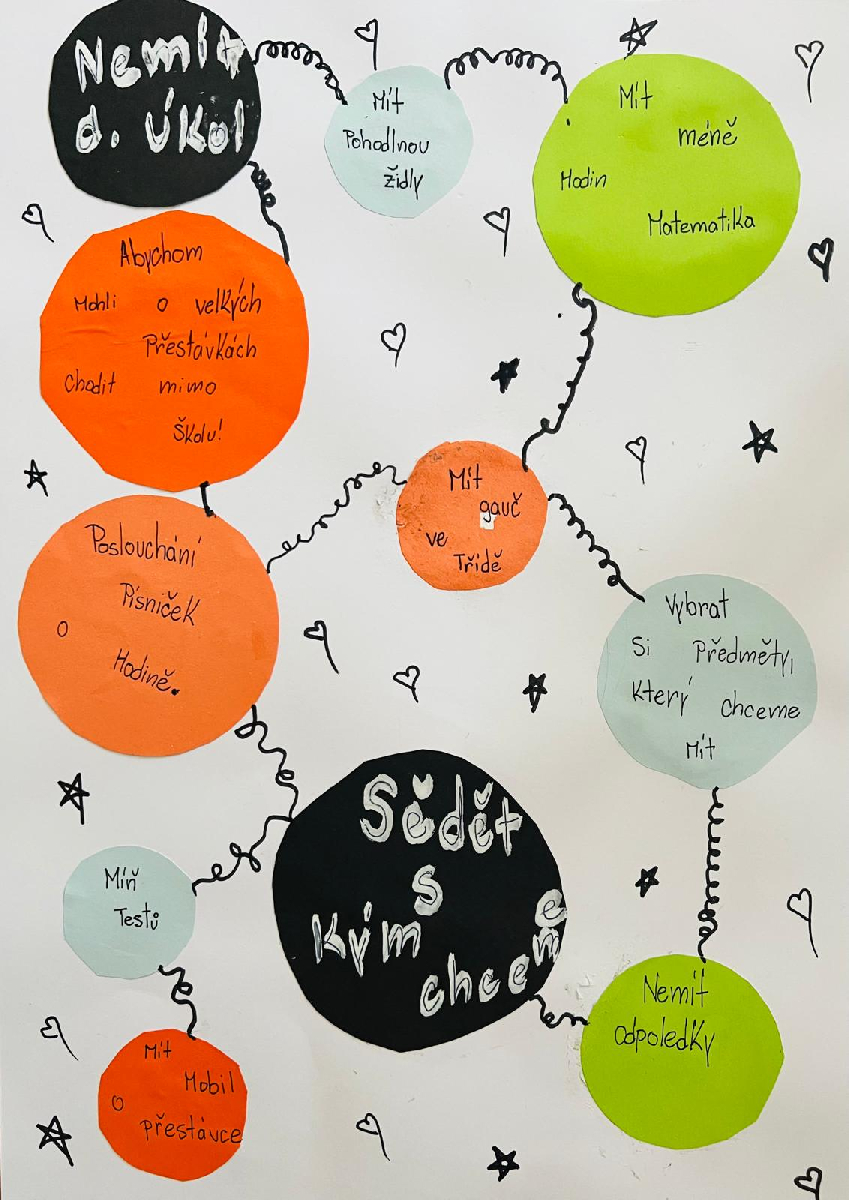 Nemít
d. úkol
Mít
Pohodlnou
židly
Mít
méně
Hodin
Matematika
Abychom
Mohli o velkých
Přestávkách
Chodit mimo
Školu!
Mít
gauč
ve
Třídě
Poslouchání
Písniček
o
Hodině.
Vybrat
Si Předměty,
Který chceme
Mít
Sědět
s
Kým
chceme
Míň
Testů
Nemít
odpoledky
Mít
Mobil
o
přestávce